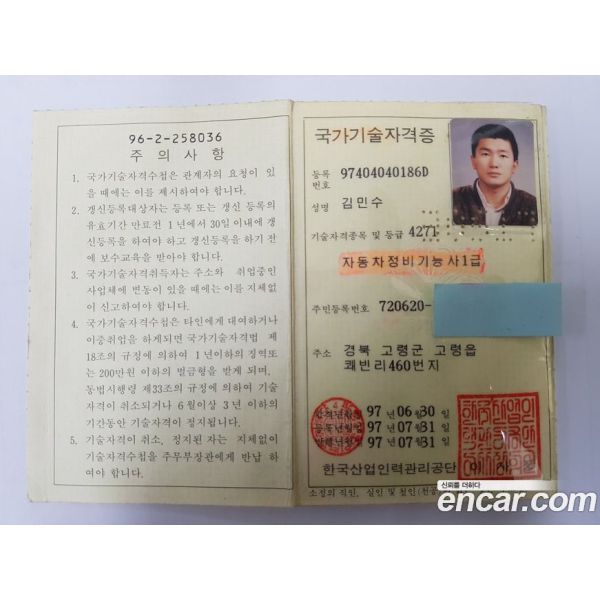 96-2-258036
주 의 사 항
1. 국가기술자격수첩은 관계자의 요청이 있
을 때에는 이를 제시하여야 합니다.
2. 갱신등록대상자는 등록 또는 갱신 등록의
유효기간 만료전 1년에서 30일 이내에 갱
신등록을 하여야 하고 갱신등록을 하기 전
에 보수교육을 받아야 합니다.
3. 국가기술자격취득자는 주소와 취업중인
사업체에 변동이 있을 때에는 이를 지체없
이 신고하여야 합니다.
4. 국가기술자격수첩은 타인에게 대여하거나
이중취업을 하게되면 국가기술자격법 제
18조의 규정에 의하여 1년이하의 징역또
는 200만원 이하의 벌금형을 받게 되며,
동법시행령 제33조의 규정에 의하여 기술
자격이 취소되거나 6월이상 3년 이하의
기간동안 기술자격이 정지됩니다.
5. 기술자격이 취소, 정지된 자는 지체없이
기술자격수첩을 주무부장관에게 반납 하
여야 합니다.
국가기술자격증
등록
번호 97404040186D
성명 김민수
기술자격종목 및 등급 4271
자동차정비기능사1급
주민등록번호 720620-
주소 경북 고령군 고령읍
쾌빈리460번지
합격년월일 97 년 06 월 30 일
등록년월일 97 년 07 월 31 일
발행년월일 97 년 07 월 31 일
한국산업인력관리공단
소정의 직인, 실인 및 철인(천공
신뢰를 더하다
encar.com